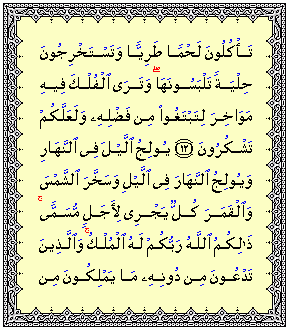 تَأْكُلُونَ لَحْمًا طَرِيًّا وَتَسْتَخْرِجُونَ
حِلْيَةً تَلْبَسُونَهَا ۖ وَتَرَى ٱلْفُلْكَ فِيهِ
مَوَاخِرَ لِتَبْتَغُوا۟ مِن فَضْلِهِۦ وَلَعَلَّكُمْ
تَشْكُرُونَ ﴿١٢﴾ يُولِجُ ٱلَّيْلَ فِى ٱلنَّهَارِ
وَيُولِجُ ٱلنَّهَارَ فِى ٱلَّيْلِ وَسَخَّرَ ٱلشَّمْسَ
وَٱلْقَمَرَ كُلٌّ يَجْرِى لِأَجَلٍ مُّسَمًّى ۚ
ذَٰلِكُمُ ٱللَّهُ رَبُّكُمْ لَهُ ٱلْمُلْكُ ۚ وَٱلَّذِينَ
تَدْعُونَ مِن دُونِهِۦ مَا يَمْلِكُونَ مِن